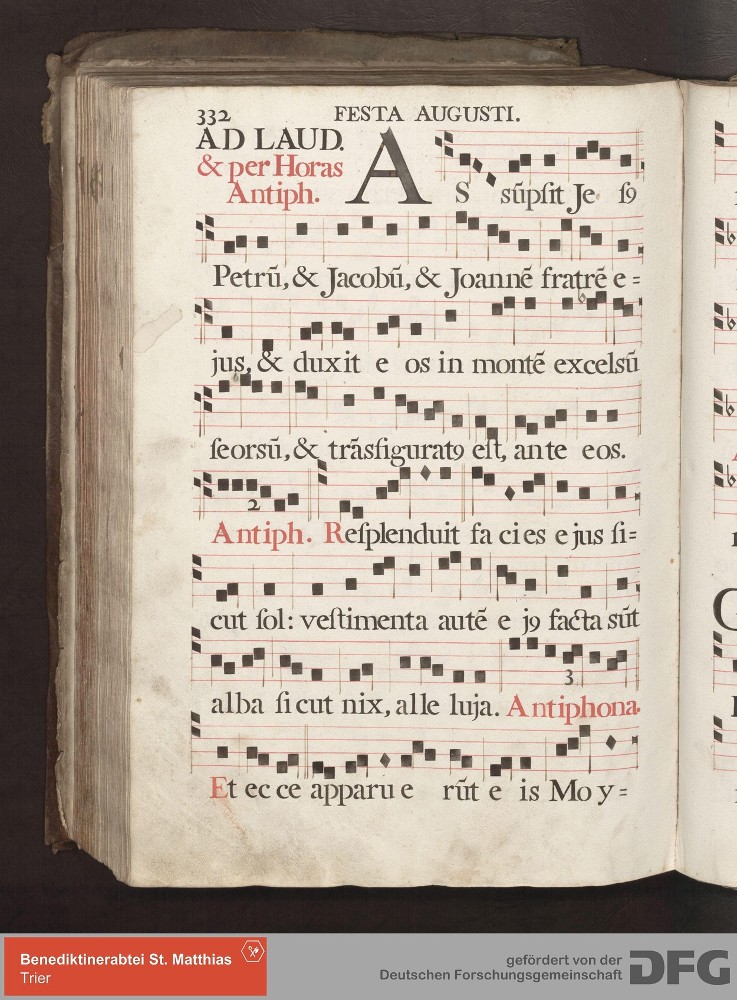 332 FESTA AUGUSTI.
AD LAUD.
& per Horas
Antiph.
AS sūpſit Je ſꝯ
Petrū, & Jacobū, & Joannē fratrē e=
jus, & duxit e os in montē excelsū
ſeorsū, & trāsfiguratꝯ eſt, ante eos.
2
Antiph. Reſplenduit fa ci es e jus ſi=
cut ſol: veſtimenta autē e jꝯ facta sūt
3
alba ſi cut nix, al le luja. Antiphona.
Et ec ce apparu e rūt e is Mo y=
Benediktinerabtei St. Matthias
Trier
gefördert von der
Deutschen Forschungsgemeinschaft
DFG